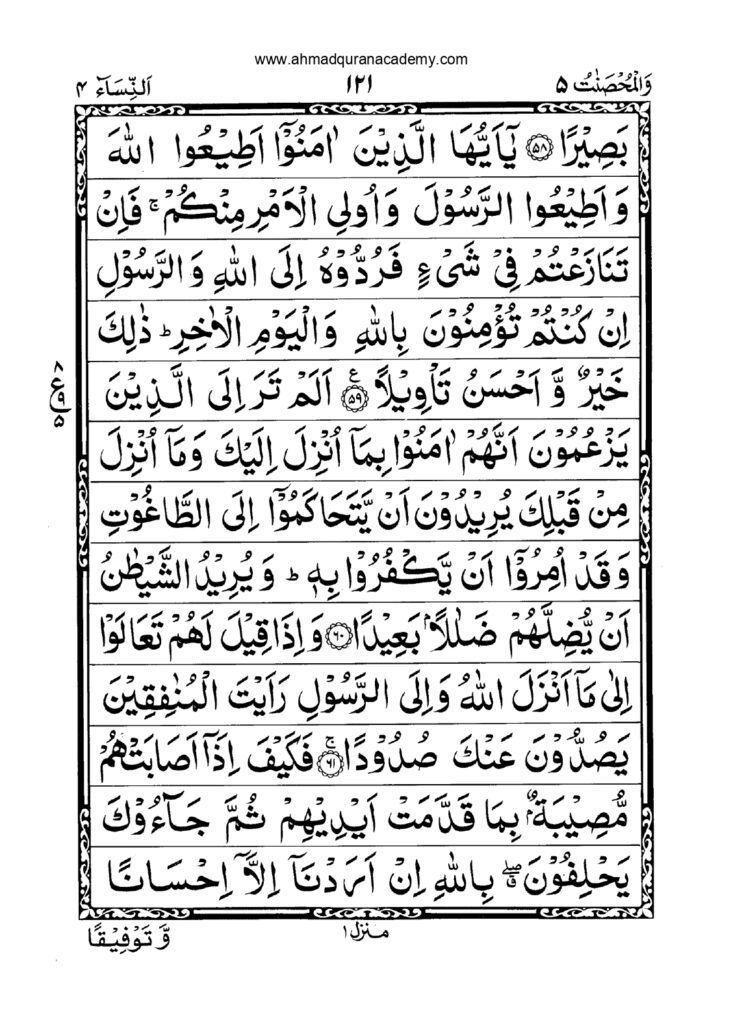 www.ahmadquranacademy.com
وَالْمُحْصَنٰتُ ۵ ۱۲۱ اَلنِّسَآء ۴
بَصِیْرًا ﴿۵۸﴾ یٰۤاَیُّهَا الَّذِیْنَ اٰمَنُوْۤا اَطِیْعُوا اللّٰهَ
وَ اَطِیْعُوا الرَّسُوْلَ وَ اُولِی الْاَمْرِ مِنْكُمْ ۚ فَاِنْ
تَنَازَعْتُمْ فِیْ شَیْءٍ فَرُدُّوْهُ اِلَی اللّٰهِ وَ الرَّسُوْلِ
اِنْ كُنْتُمْ تُؤْمِنُوْنَ بِاللّٰهِ وَ الْیَوْمِ الْاٰخِرِ ؕ ذٰلِكَ
خَیْرٌ وَّ اَحْسَنُ تَاْوِیْلًا ﴿۵۹﴾ ع اَلَمْ تَرَ اِلَی الَّذِیْنَ
یَزْعُمُوْنَ اَنَّهُمْ اٰمَنُوْا بِمَاۤ اُنْزِلَ اِلَیْكَ وَ مَاۤ اُنْزِلَ
مِنْ قَبْلِكَ یُرِیْدُوْنَ اَنْ یَّتَحَاكَمُوْۤا اِلَی الطَّاغُوْتِ
وَ قَدْ اُمِرُوْۤا اَنْ یَّكْفُرُوْا بِهٖ ؕ وَ یُرِیْدُ الشَّیْطٰنُ
اَنْ یُّضِلَّهُمْ ضَلٰلًۢا بَعِیْدًا ﴿۶۰﴾ وَ اِذَا قِیْلَ لَهُمْ تَعَالَوْا
اِلٰی مَاۤ اَنْزَلَ اللّٰهُ وَ اِلَی الرَّسُوْلِ رَاَیْتَ الْمُنٰفِقِیْنَ
یَصُدُّوْنَ عَنْكَ صُدُوْدًا ﴿۶۱﴾ ۚ فَكَیْفَ اِذَاۤ اَصَابَتْهُمْ
مُّصِیْبَةٌۢ بِمَا قَدَّمَتْ اَیْدِیْهِمْ ثُمَّ جَآءُوْكَ
یَحْلِفُوْنَ ۖ ق بِاللّٰهِ اِنْ اَرَدْنَاۤ اِلَّاۤ اِحْسَانًا
منزل ۱
وَّ تَوْفِیْقًا